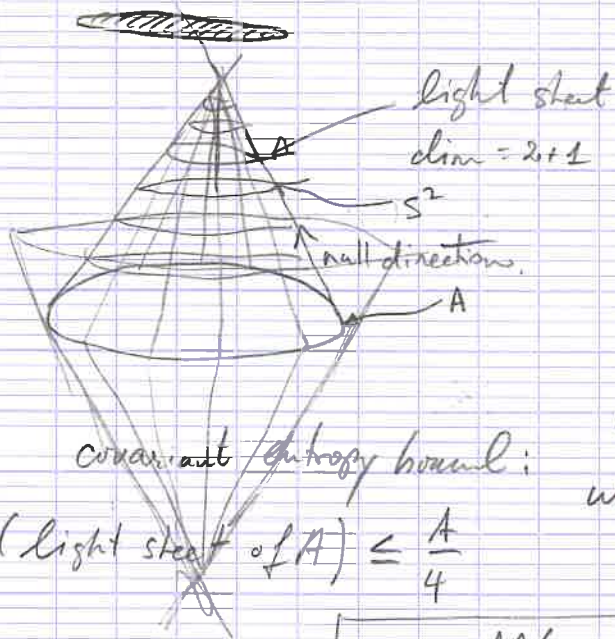 light sheet
dim = 2+1
S²
null direction.
A
covariant entropy bound:
(light sheet of A) ≤ A/4